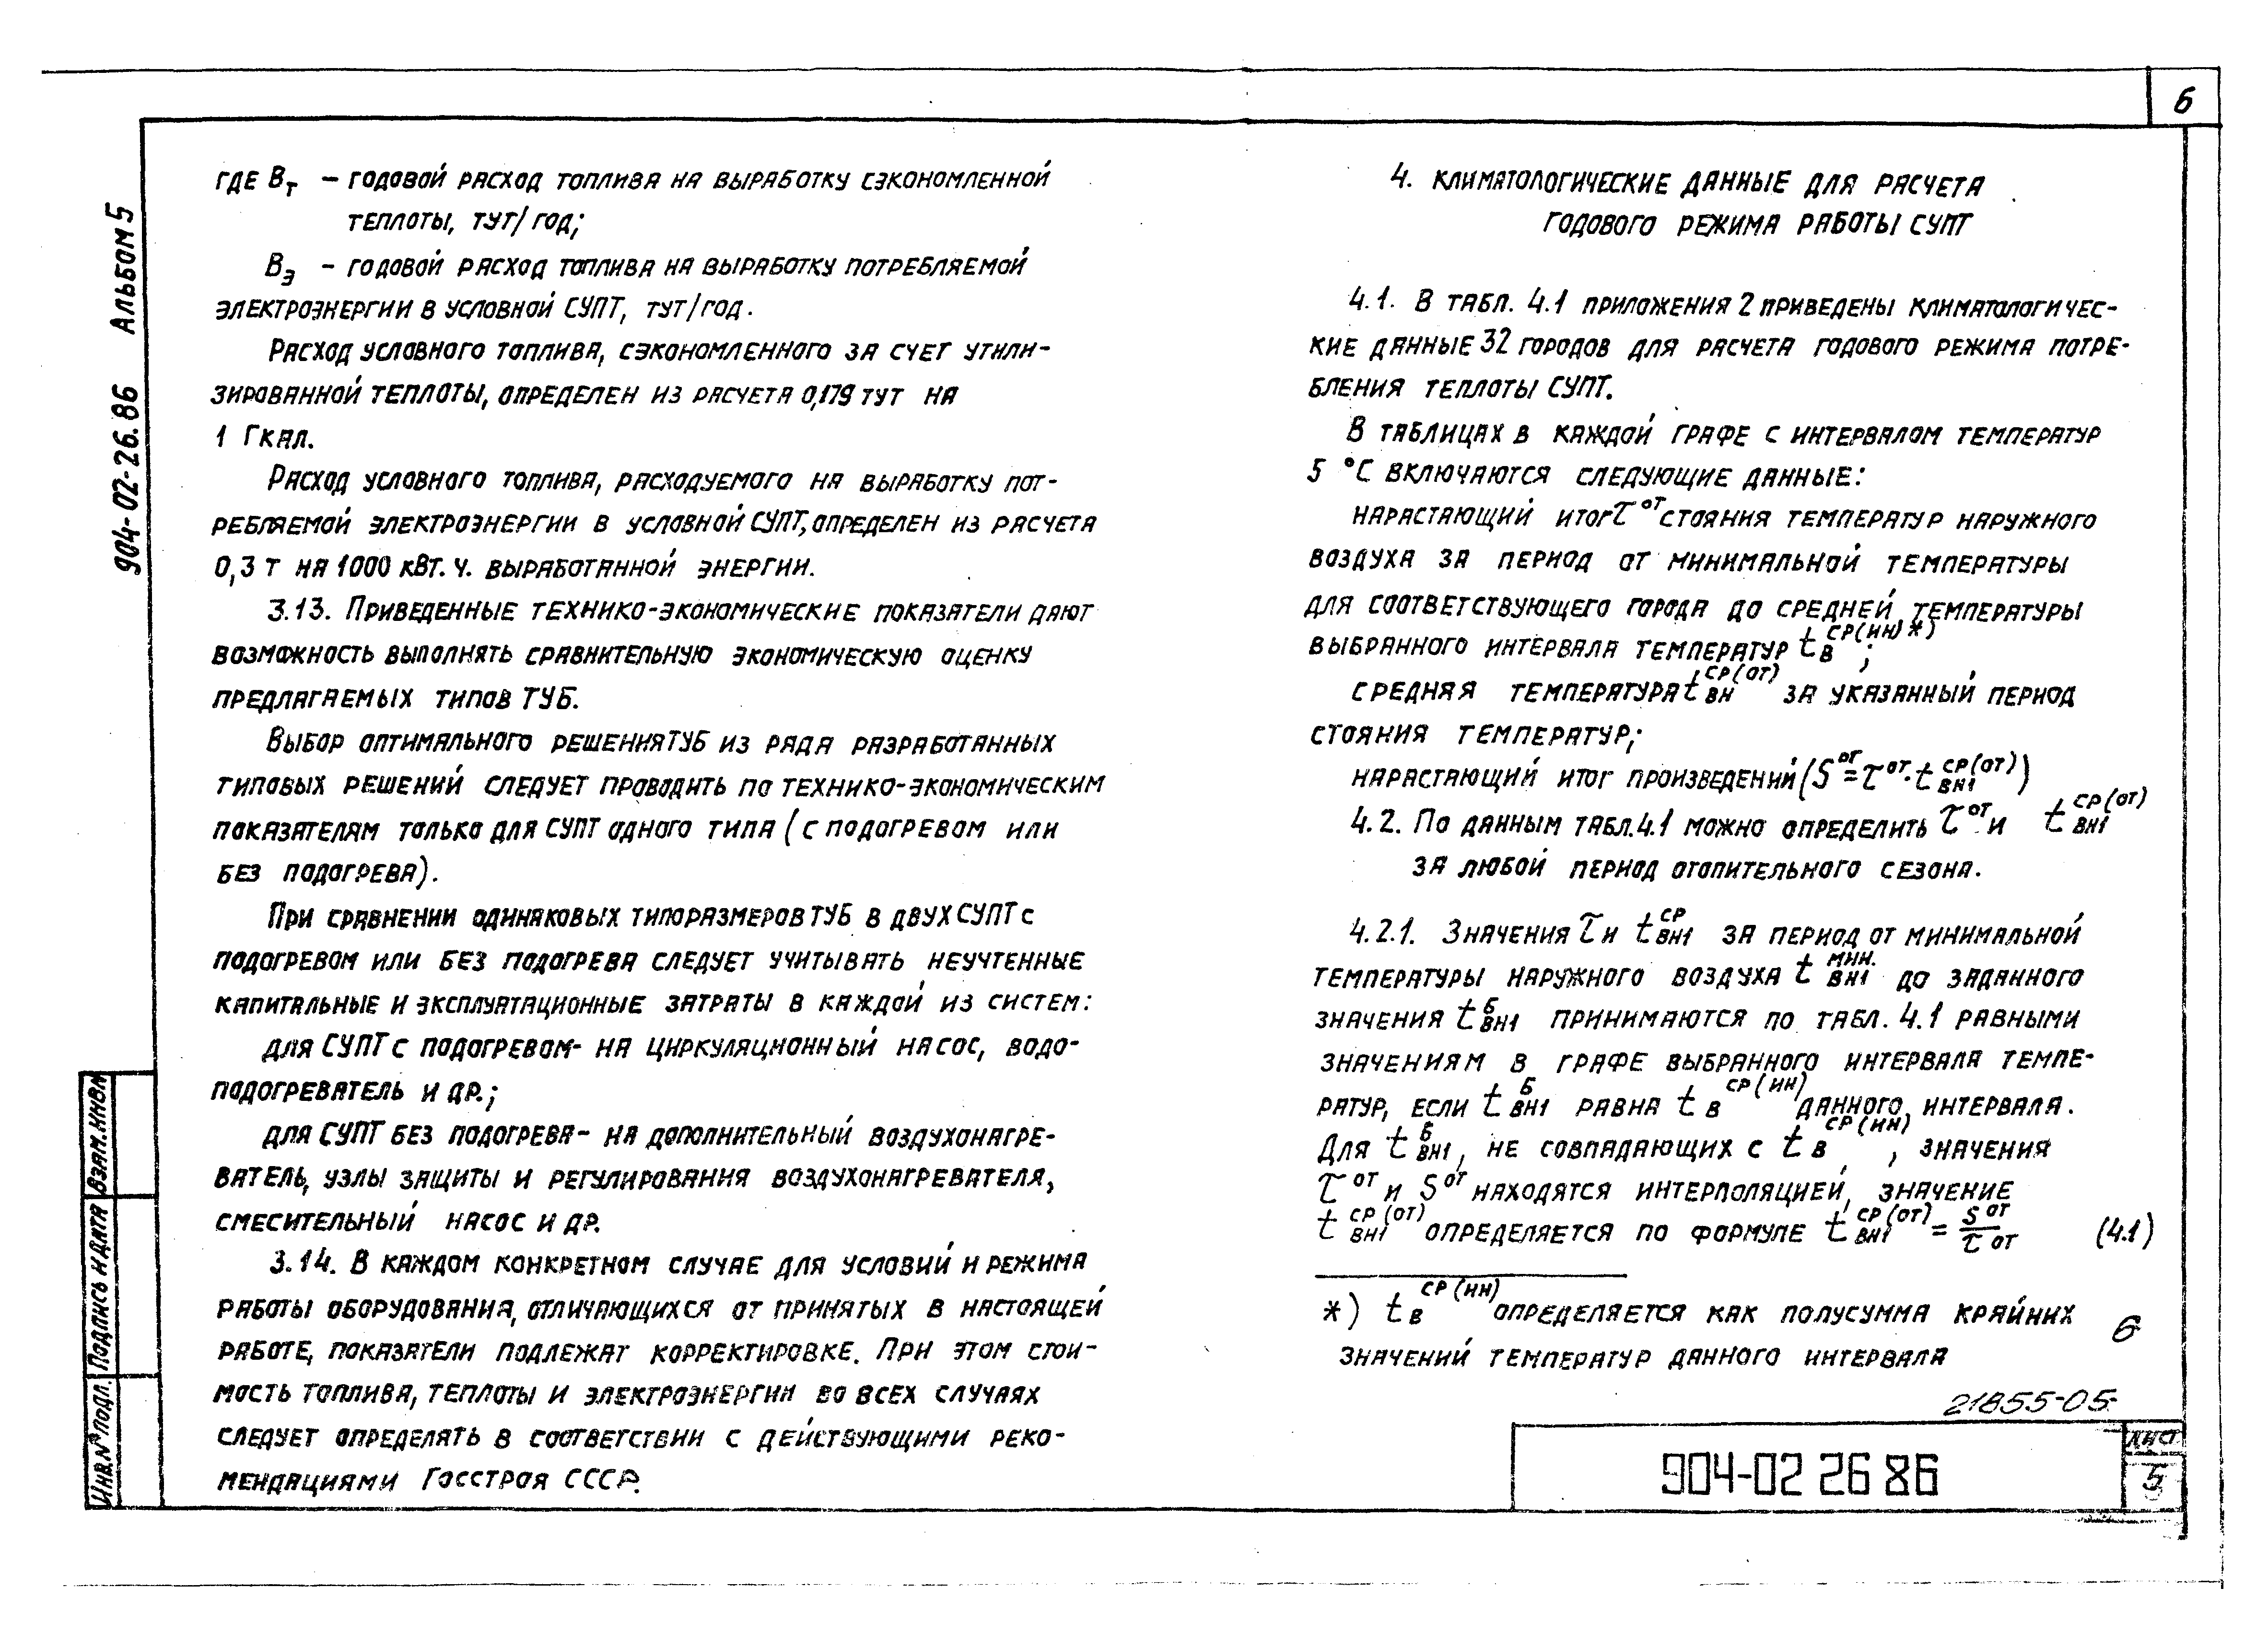 6
904-02-26.86 Альбом 5
где Вт – годовой расход топлива на выработку сэкономленной
теплоты, тут/год;
Вэ – годовой расход топлива на выработку потребляемой
электроэнергии в условной СУПТ, тут/год.
Расход условного топлива, сэкономленного за счет утили-
зированной теплоты, определен из расчета 0,179 тут на
1 Гкал.
Расход условного топлива, расходуемого на выработку пот-
ребляемой электроэнергии в условной СУПТ, определен из расчета
0,3 т на 1000 кВт.ч. выработанной энергии.
3.13. Приведенные технико-экономические показатели дают
возможность выполнять сравнительную экономическую оценку
предлагаемых типов ТУБ.
Выбор оптимального решения ТУБ из ряда разработанных
типовых решений следует проводить по технико-экономическим
показателям только для СУПТ одного типа (с подогревом или
без подогрева).
При сравнении одинаковых типоразмеров ТУБ в двух СУПТ с
подогревом или без подогрева следует учитывать неучтенные
капитальные и эксплуатационные затраты в каждой из систем:
для СУПТ с подогревом- на циркуляционный насос, водо-
подогреватель и др.;
для СУПТ без подогрева- на дополнительный воздухонагре-
ватель, узлы защиты и регулирования воздухонагревателя,
смесительный насос и др.
3.14. В каждом конкретном случае для условий и режима
работы оборудования, отличающихся от принятых в настоящей
работе, показатели подлежат корректировке. При этом стои-
мость топлива, теплоты и электроэнергии во всех случаях
следует определять в соответствии с действующими реко-
мендациями Госстроя СССР.
4. Климатологические данные для расчета
годового режима работы СУПТ
4.1. В табл. 4.1 приложения 2 приведены климатологичес-
кие данные 32 городов для расчета годового режима потре-
бления теплоты СУПТ.
В таблицах в каждой графе с интервалом температур
5 °С включаются следующие данные:
нарастающий итог τ^от стояния температур наружного
воздуха за период от минимальной температуры
для соответствующего города до средней температуры
выбранного интервала температур t_в^ср(ин)*);
средняя температура t_вн^ср(от) за указанный период
стояния температур;
нарастающий итог произведений (S^от = τ^от · t_вн1^ср(от))
4.2. По данным табл. 4.1 можно определить τ^от и t_вн1^ср(от)
за любой период отопительного сезона.
4.2.1. Значения τ и t_вн1^ср за период от минимальной
температуры наружного воздуха t_вн1^мин. до заданного
значения t_вн1^б принимаются по табл. 4.1 равными
значениям в графе выбранного интервала темпе-
ратур, если t_вн1^б равна t_в^ср(ин) данного интервала.
Для t_вн1^б, не совпадающих с t_в^ср(ин), значения
τ^от и S^от находятся интерполяцией, значение
t_вн1^ср(от) определяется по формуле t_вн1^ср(от) = S^от/τ^от (4.1)
*) t_в^ср(ин) определяется как полусумма крайних
значений температур данного интервала
6
21855-05
904-02 26 86
Лист
5
Взам.инв.№
Подпись и дата
Инв.№ подл.